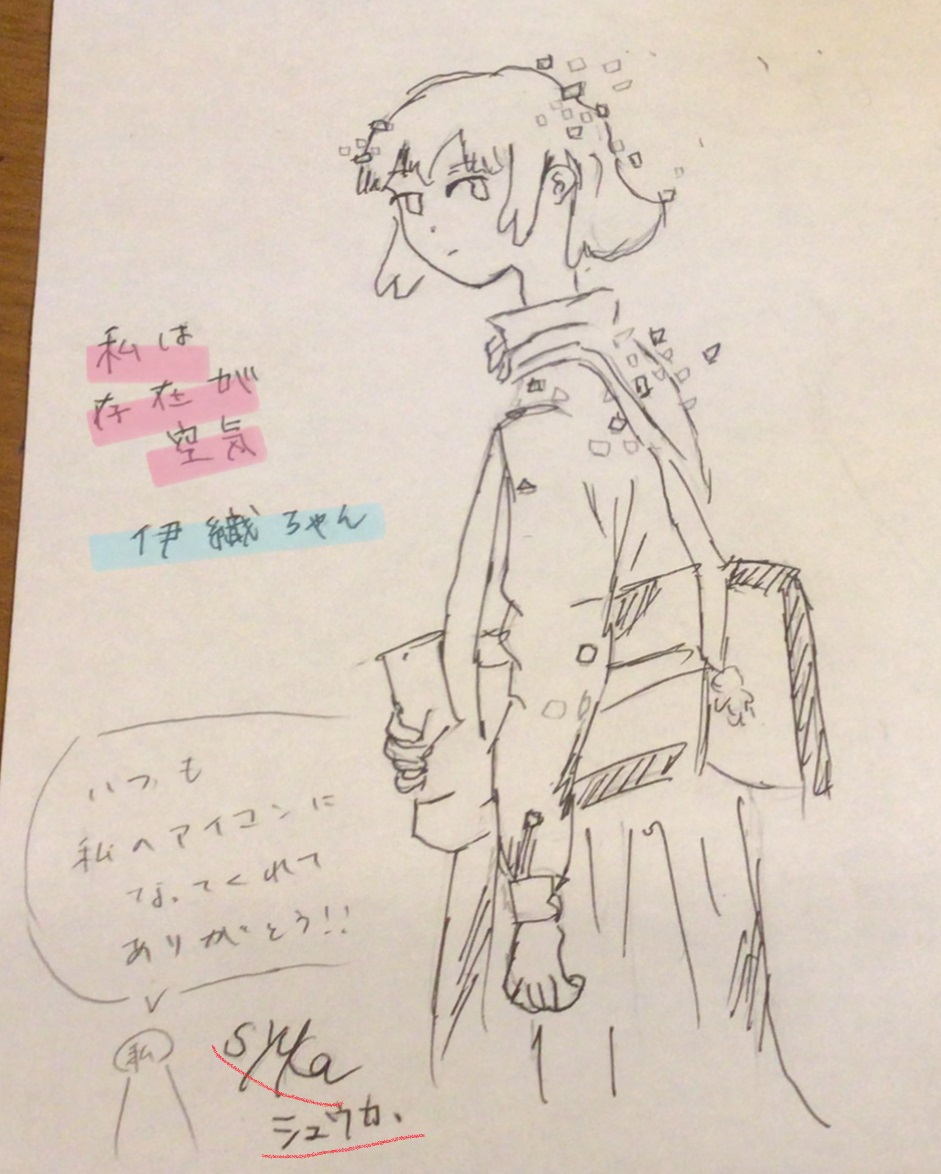 私は
存在が
空気
伊織ちゃん
いつも
私のアイコンに
なってくれて
ありがとう!!
私
syuka
シュウカ、